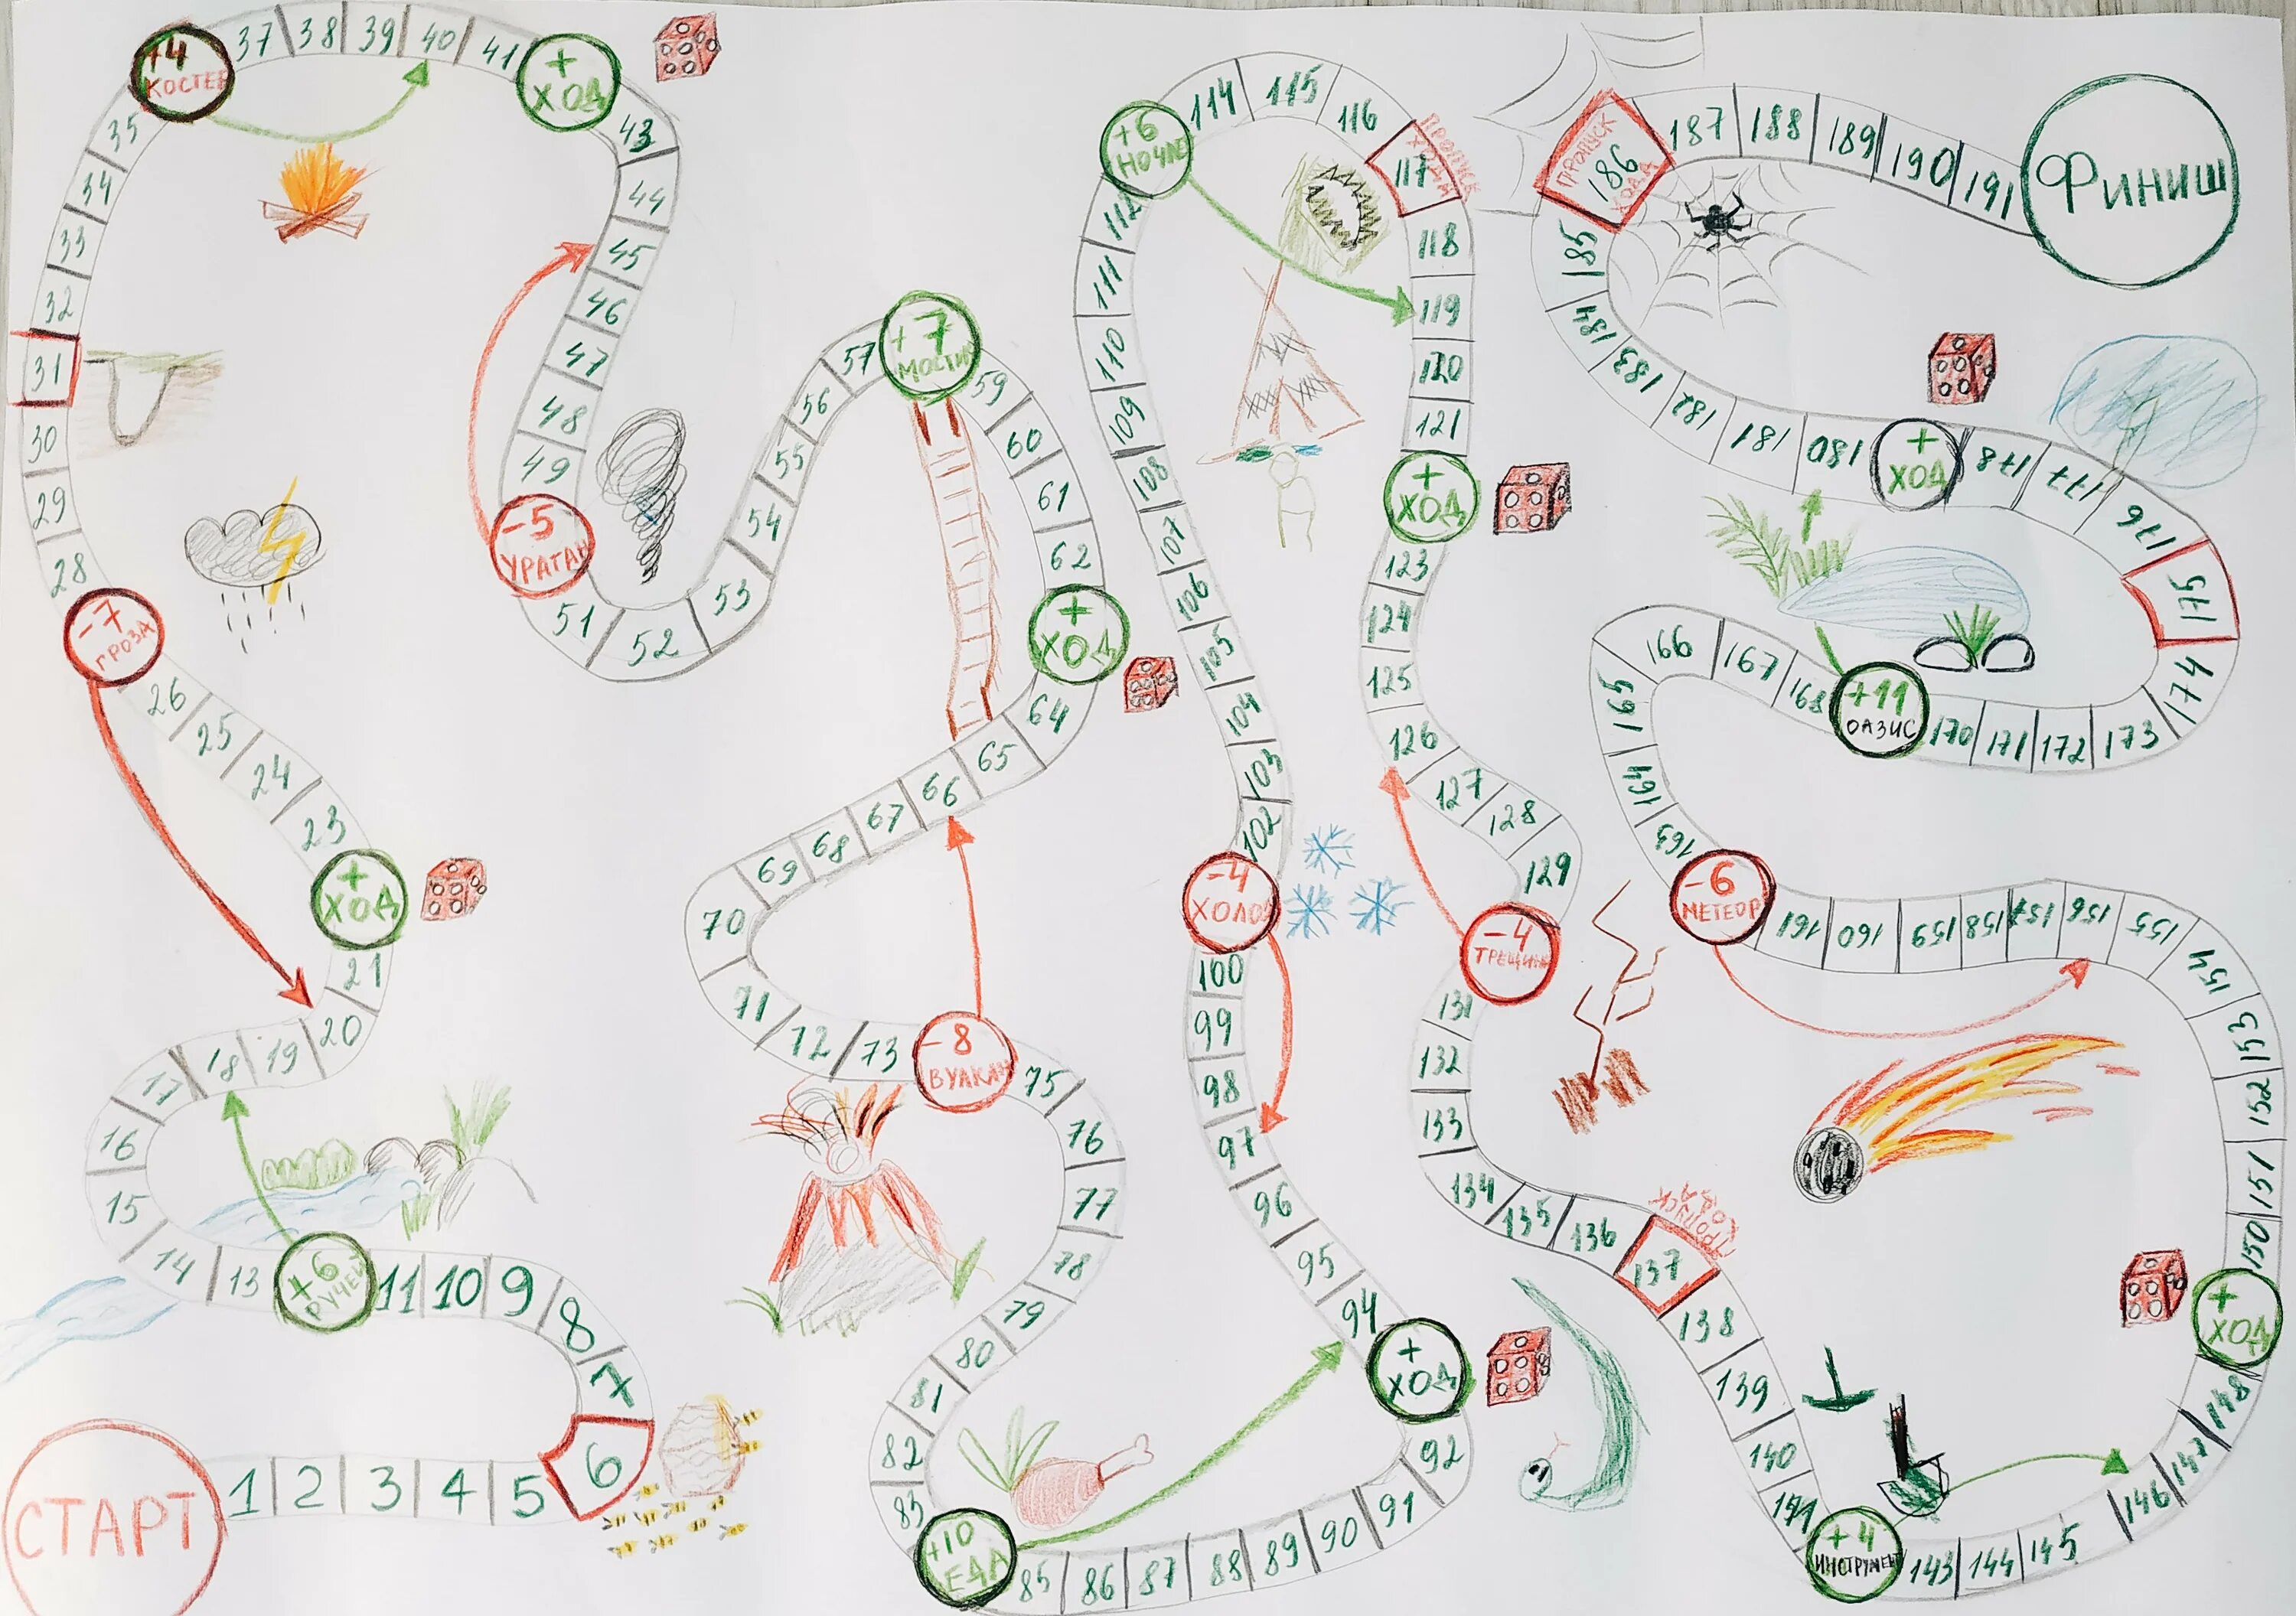 СТАРТ
1
2
3
4
5
6
7
8
9
10
11
+6
РУЧЕЙ
13
14
15
16
17
18
19
20
21
+
ХОД
23
24
25
26
-7
ГРОЗА
28
29
30
31
32
33
34
35
+4
КОСТЕР
37
38
39
40
41
+
ХОД
43
44
45
46
47
48
49
-5
УРАГАН
51
52
53
54
55
56
57
+7
МОСТИК
59
60
61
62
+
ХОД
64
65
66
67
68
69
70
71
72
73
-8
ВУЛКАН
75
76
77
78
79
80
81
82
83
+10
ЕДА
85
86
87
88
89
90
91
92
+
ХОД
94
95
96
97
98
99
100
-4
ХОЛОД
102
103
104
105
106
107
108
109
110
111
112
+6
НОЧЛЕ
114
115
116
117
ПРОПУСК
ХОДА
118
119
120
121
+
ХОД
123
124
125
126
127
128
129
-4
ТРЕЩИНА
131
132
133
134
135
136
137
ПРОПУСК
ХОДА
138
139
140
141
+4
ИНСТРУМЕНТ
143
144
145
146
147
148
+
ХОД
150
151
152
153
154
155
156
157
158
159
160
161
-6
МЕТЕОР
163
164
165
166
167
168
+11
ОАЗИС
170
171
172
173
174
175
176
177
178
+
ХОД
180
181
182
183
184
185
ПРОПУСК
186
ХОДА
187
188
189
190
191
ФИНИШ